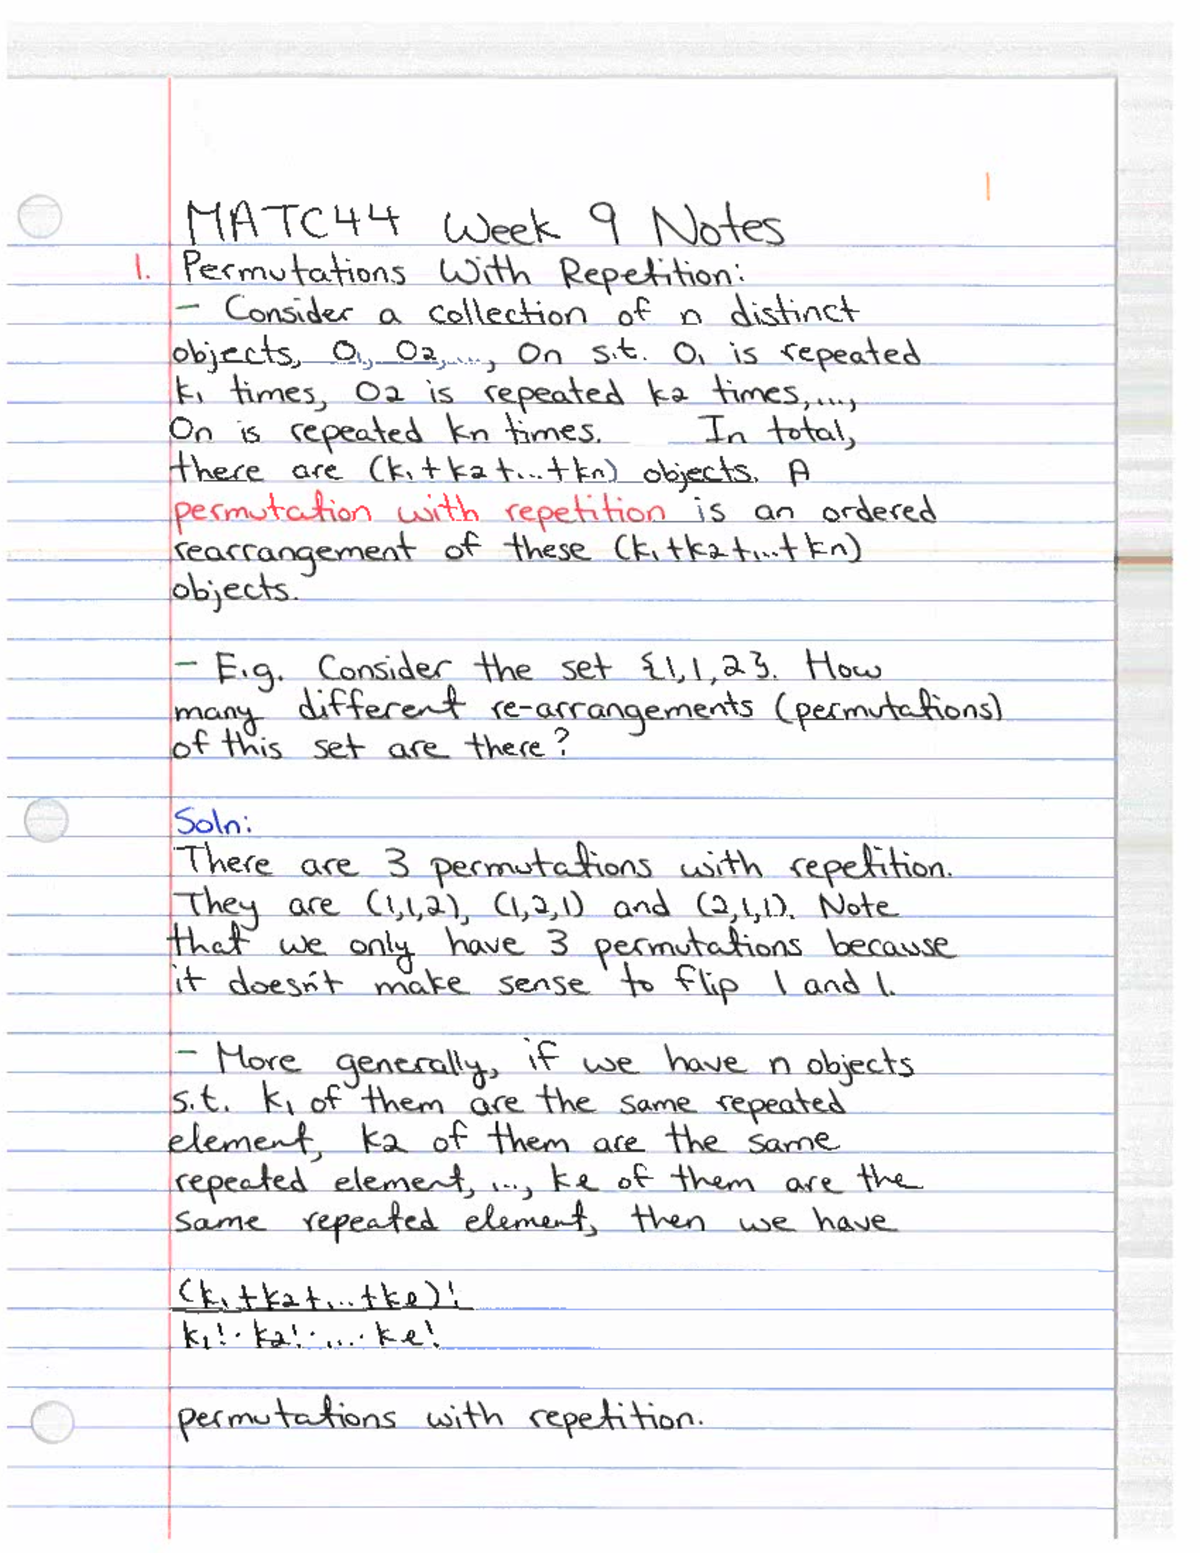 1
MATC44 Week 9 Notes
1. Permutations With Repetition:
- Consider a collection of n distinct
objects, O1, O2, ..., On s.t. O1 is repeated
k1 times, O2 is repeated k2 times, ...,
On is repeated kn times. In total,
there are (k1+k2+...+kn) objects. A
permutation with repetition is an ordered
rearrangement of these (k1+k2+...+kn)
objects.
- E.g. Consider the set {1,1,2}. How
many different re-arrangements (permutations)
of this set are there?
Soln:
There are 3 permutations with repetition.
They are (1,1,2), (1,2,1) and (2,1,1). Note
that we only have 3 permutations because
it doesn't make sense to flip 1 and 1.
- More generally, if we have n objects
s.t. k1 of them are the same repeated
element, k2 of them are the same
repeated element, ..., ke of them are the
same repeated element, then we have
(k1+k2+...+ke)!
k1!·k2!·...·ke!
permutations with repetition.